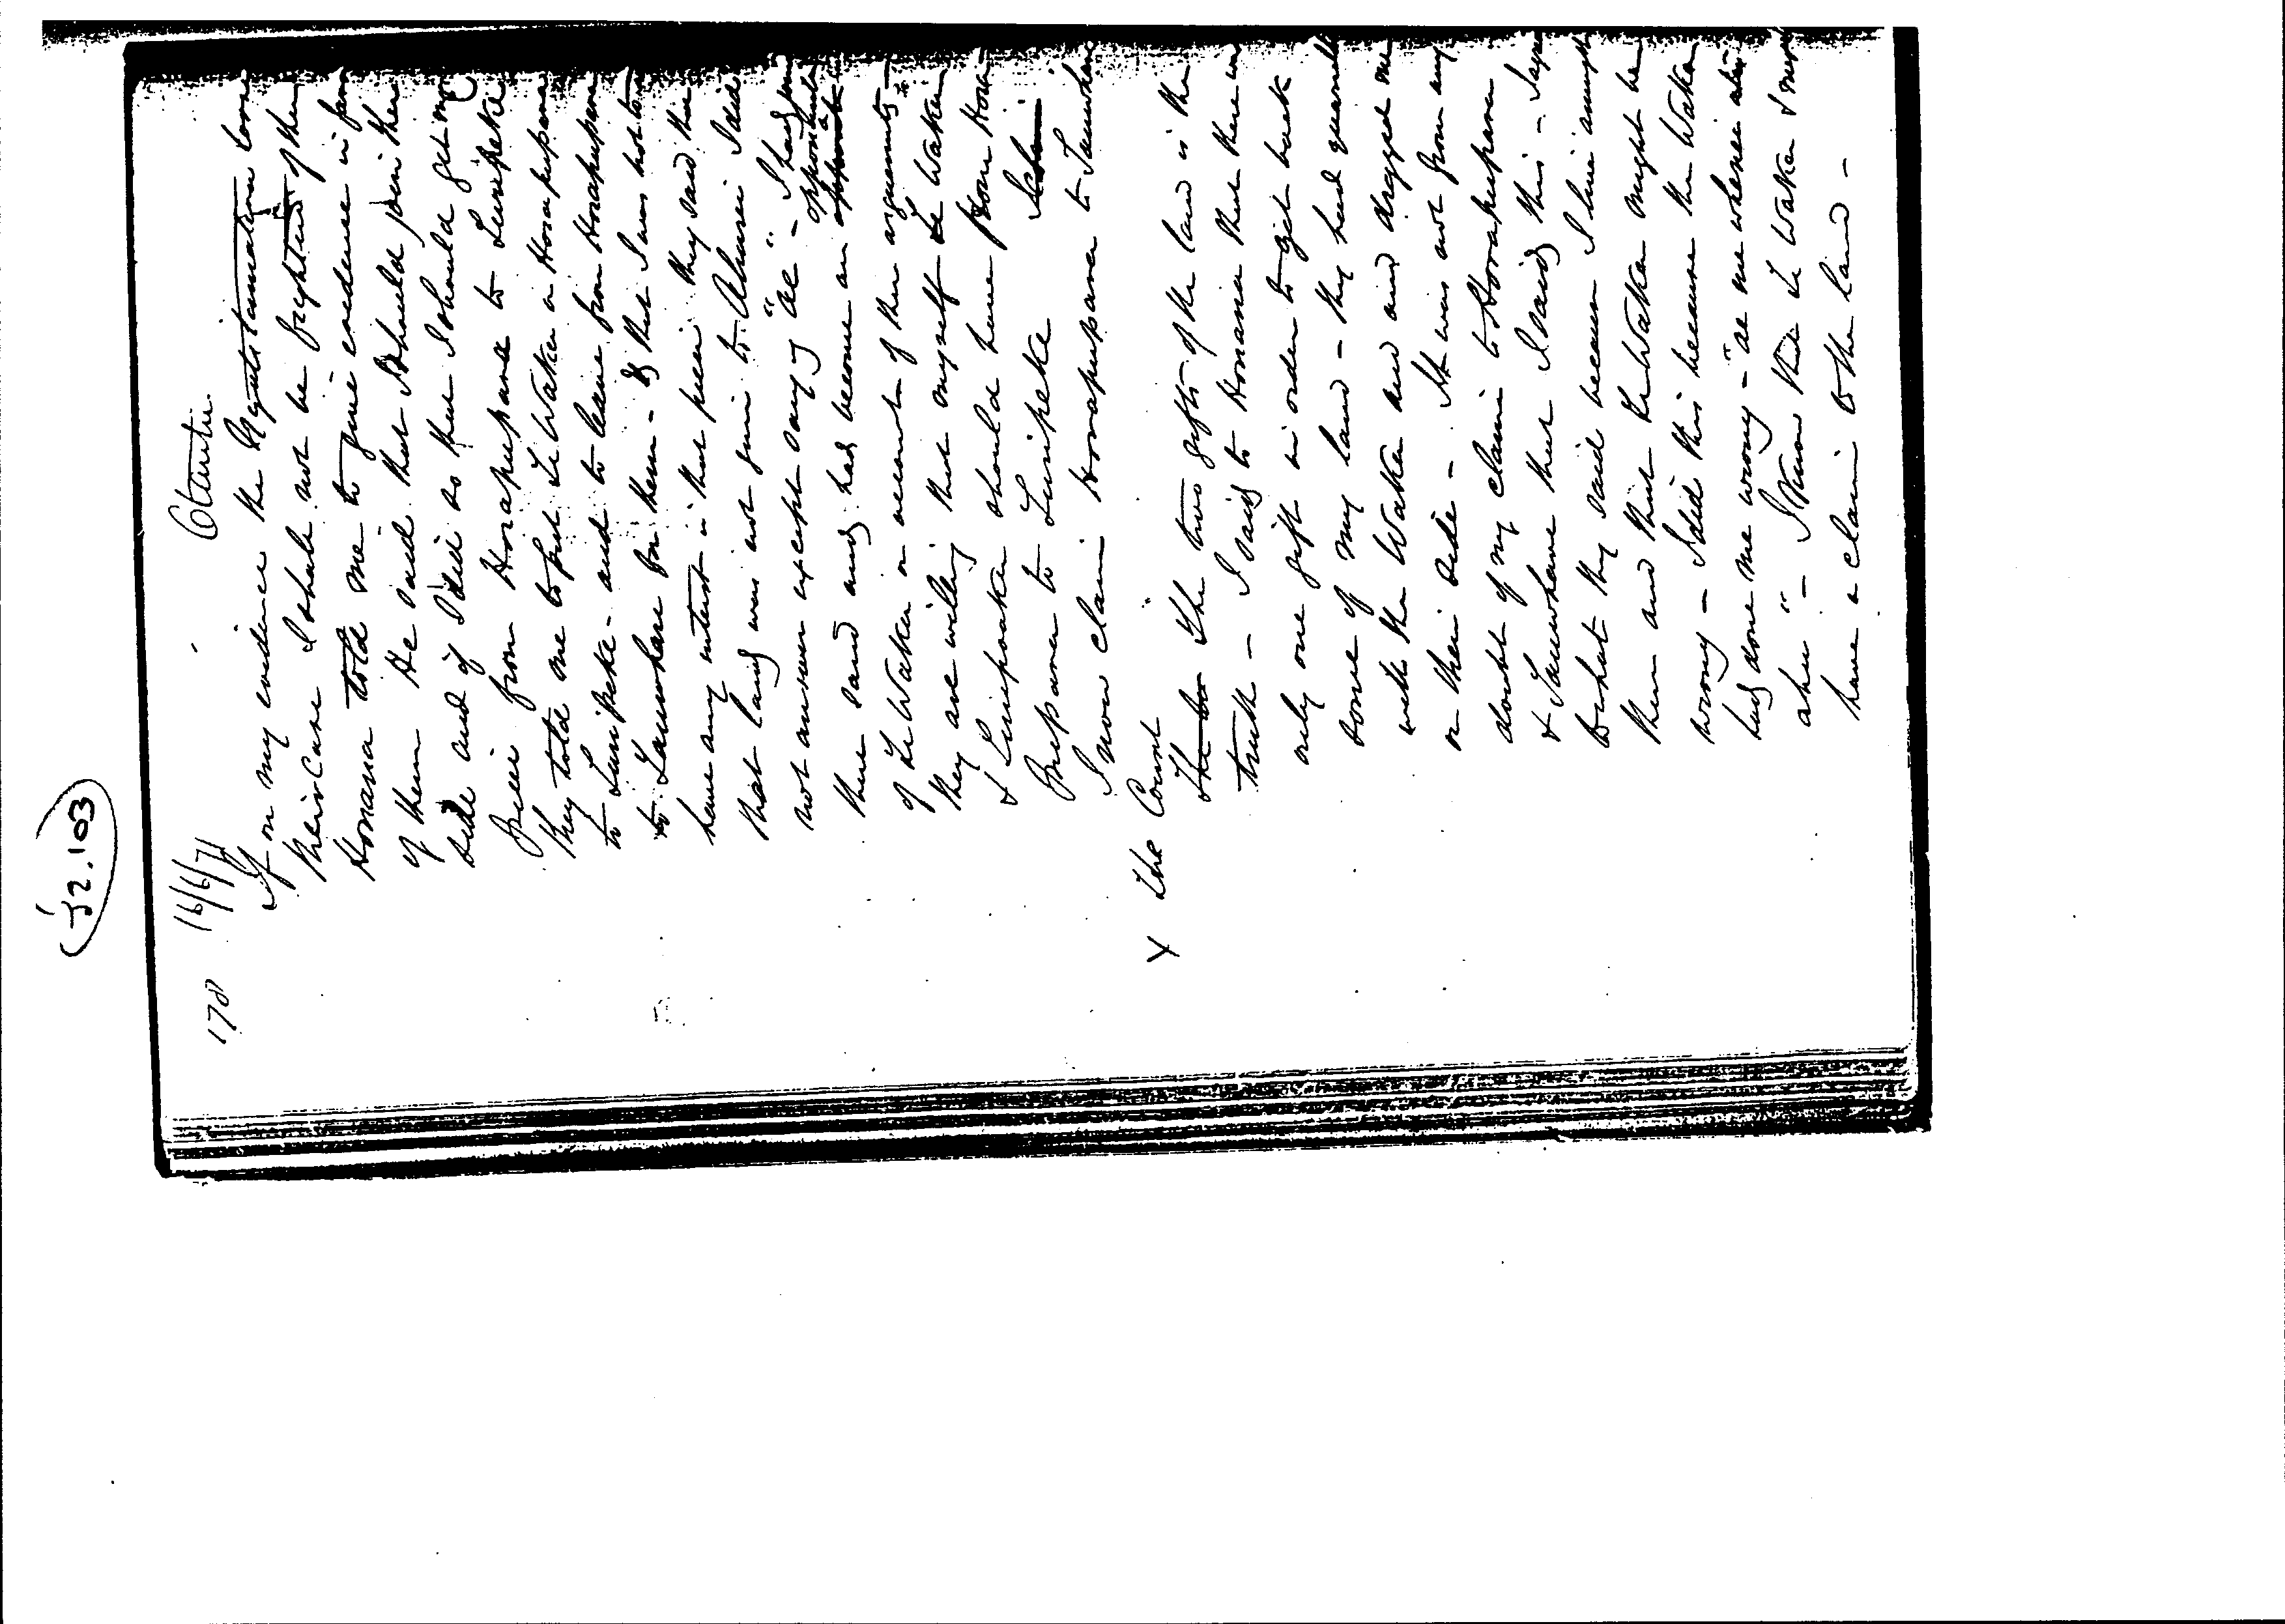 J2.103
178 16/6/71 Otautu.
If on my evidence the Ngatitaumatua loose
their case I shall not be frightened of them
Honana told me to give evidence in fav
of them He said that I should join their
side and if I did so that I should get my
piece from Horapupara to Turipeke
they told me to put Te Waka in Horapupara
to Turipeke - and to leave from Horapupara
to Tauwhare for them - & that I was not to
have any interest in that piece they said that
that land was not given to I did
not answer except saying "ae" - I had
there and had become an opponent
of Te Waka on account of their arguments
they are willing that myself Te Waka
& should have from
to Turipeke
I now claim Horapupara to Tauwhare
x The Court
The two gifts of the land is the
truth - I said to Honana that there
only one gift in order to get back
some of my land - they had quarrell
with the Waka and and dragged me
on their side - It was not from any
doubt of my claim to Horapupara
& Tauwhare that I said this - I
to what they said because I live amongst
them and that Te Waka might be
wrong - I did this because the Waka
had done me wrong -
" - I know that Te Waka &
have a claim to the land -